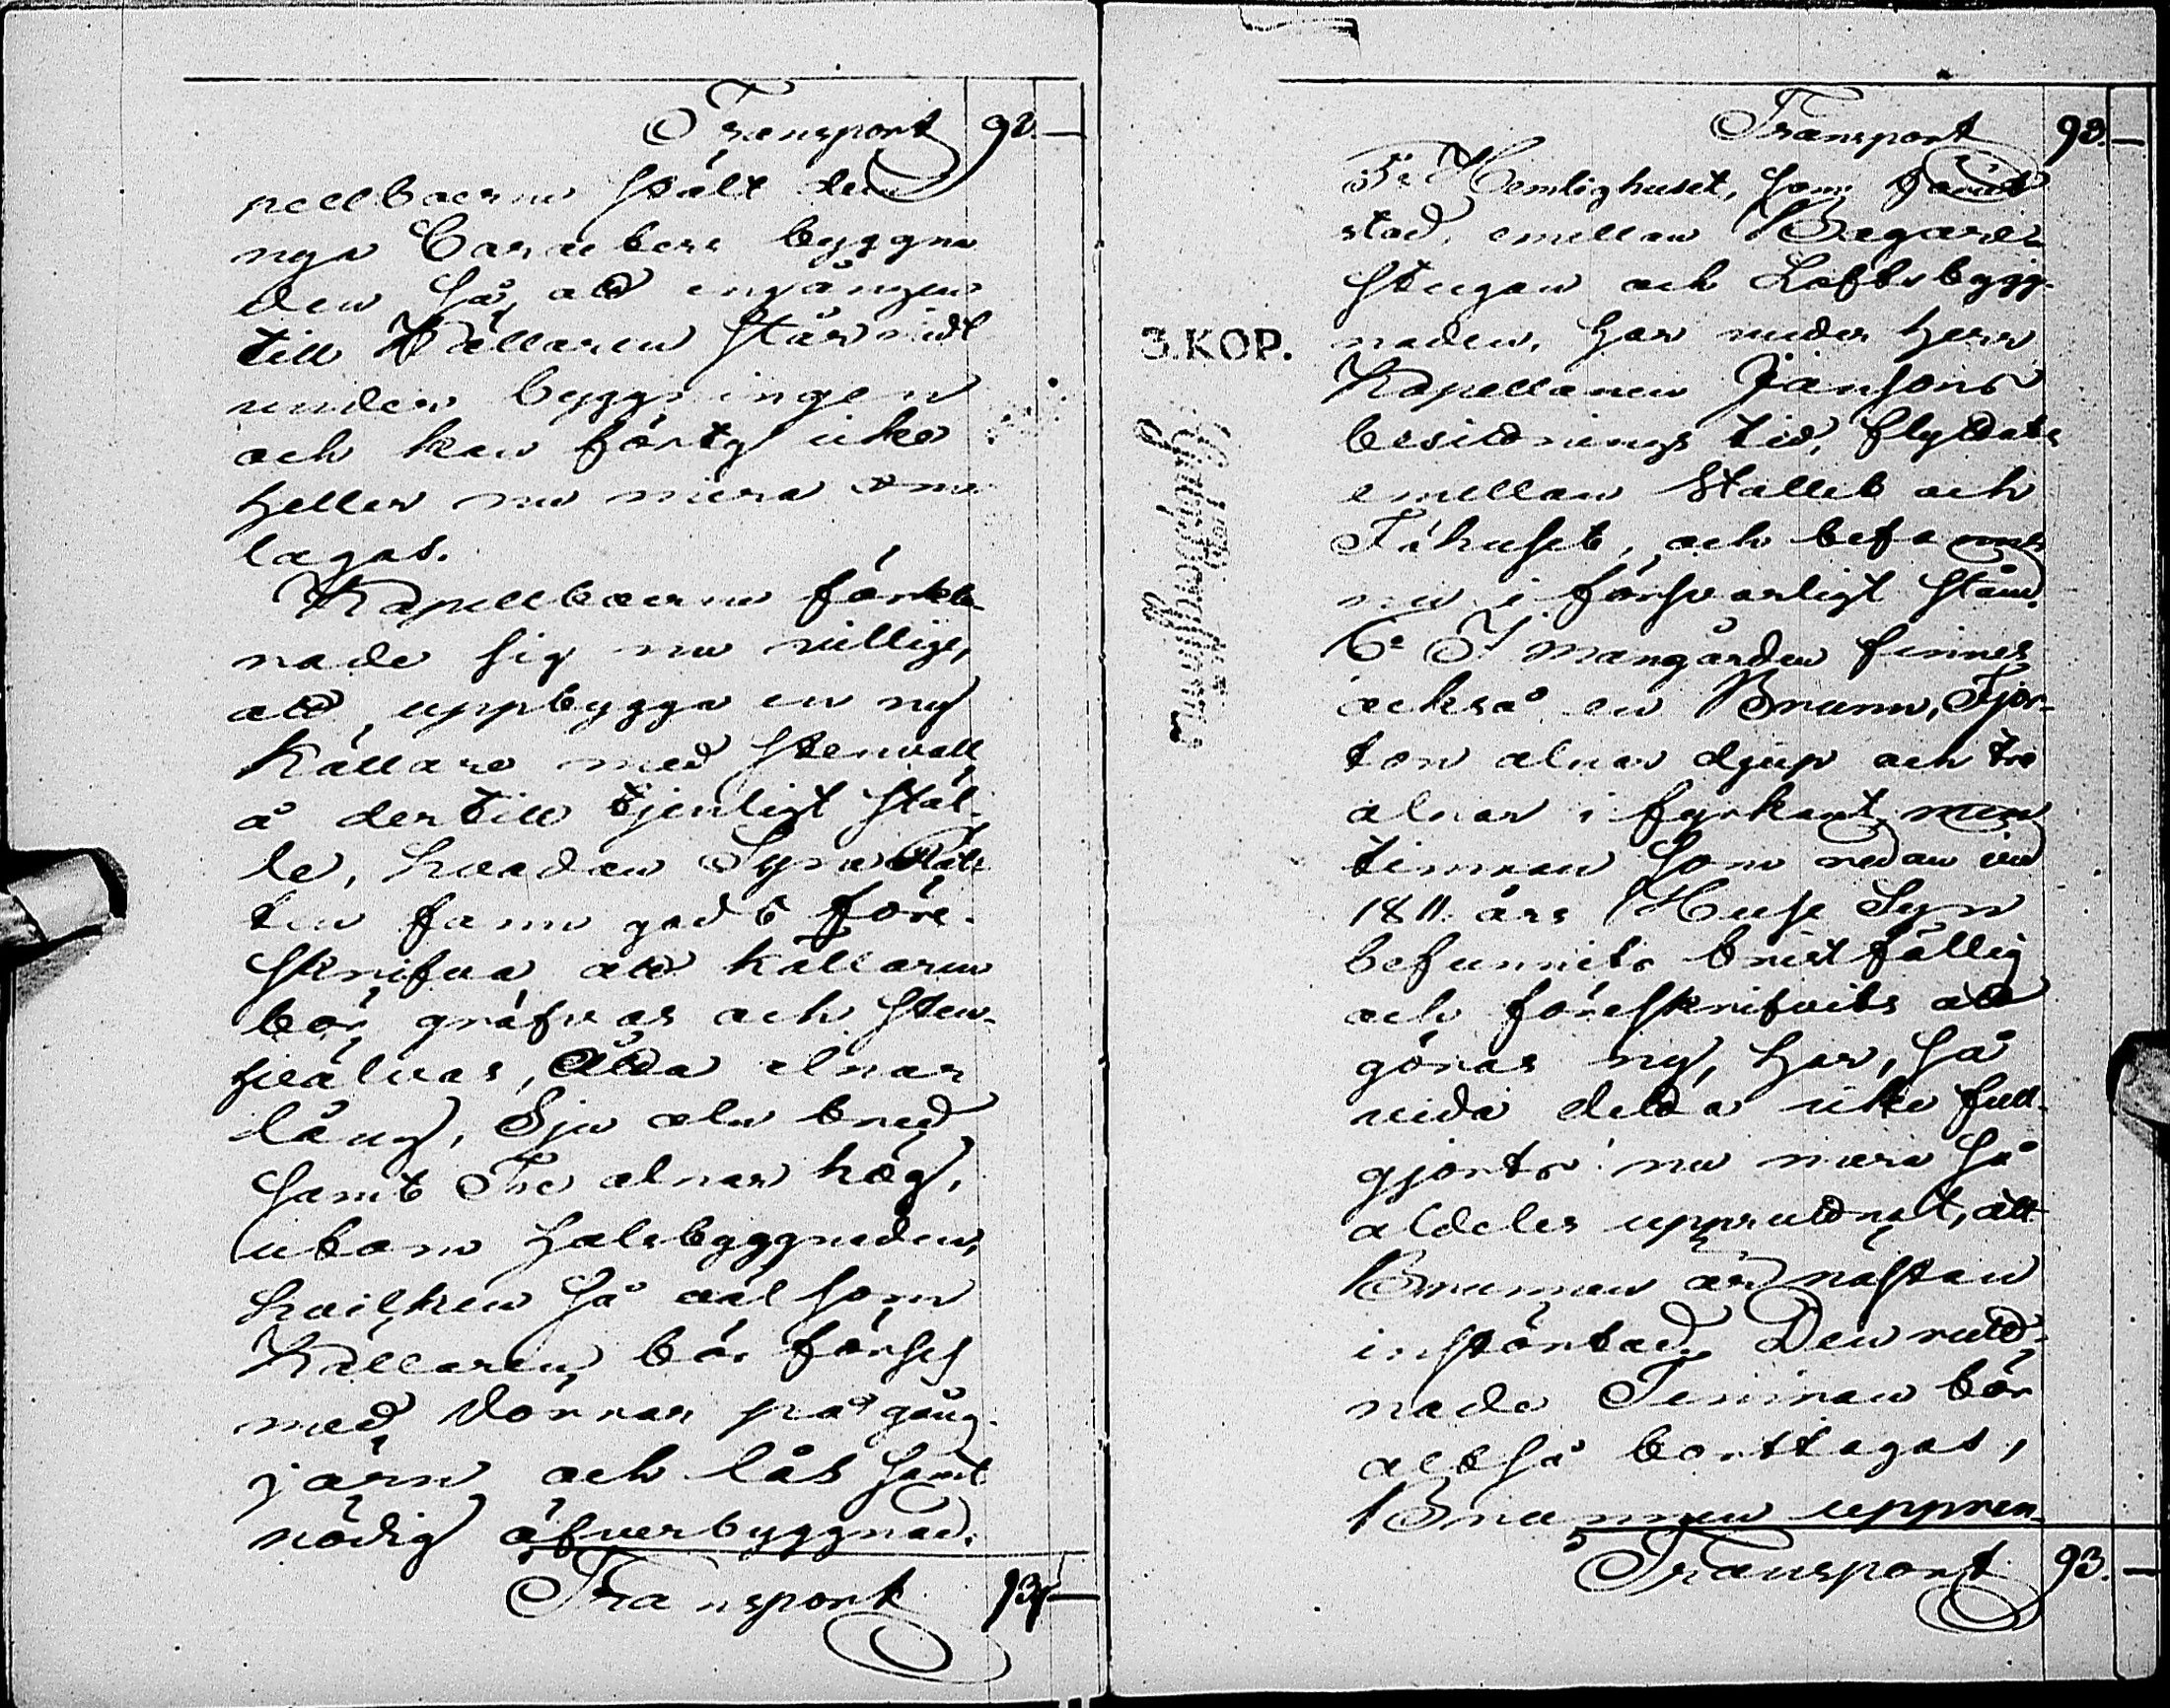 Transport 93.—
pellboerne stält den
nya Carakers byggna
den så, att ingången
till Källaren står midt
under byggningen
och kan förty icke
heller nu mera om
lagas.
Kapellboerne förkla
nade sig nu villige,
att uppbygga en ny
Källare med stenvalf,
å der till tjenligt stäl-
le, hvadan Syne Rät-
ten fann godt före-
skrifva att källaren
bör gräfvas och sten-
hvälvas, Åtta alnar
lång, Sju aln bred
samt Tre alnar hög,
utom halsbyggnaden,
hvilken så väl som
Källaren, bör förses
med Dörrar på gång-
järn och lås samt
nödig öfverbyggnad.
Transport 93.—
Transport 93.—
5º Hemlighuset, som förut
stod emellan Bagare-
stugan och Loftsbygg-
naden, har under Herr
3.KOP.
Kapellanen Jansons
besittnings tid, flyttats
emellan Stallet och
Fähuset, och befanns
nu i försvarligt stånd.
6º I mangården finnes
också en Brunn, Fjor-
ton alnar djup och tre
alnar i fyrkant, men
timran som redan vid
1811 års Huse Syn
befunnits bristfällig
och föreskrifvits att
göras ny, har, så
vida detta icke full-
gjorts nu mera så
aldeles uppruttnat, att
Brunnen är nästan
instörtad. Den rutt-
nade Timran bör
altså borttagas,
Brunnen uppren-
Transport 93.—